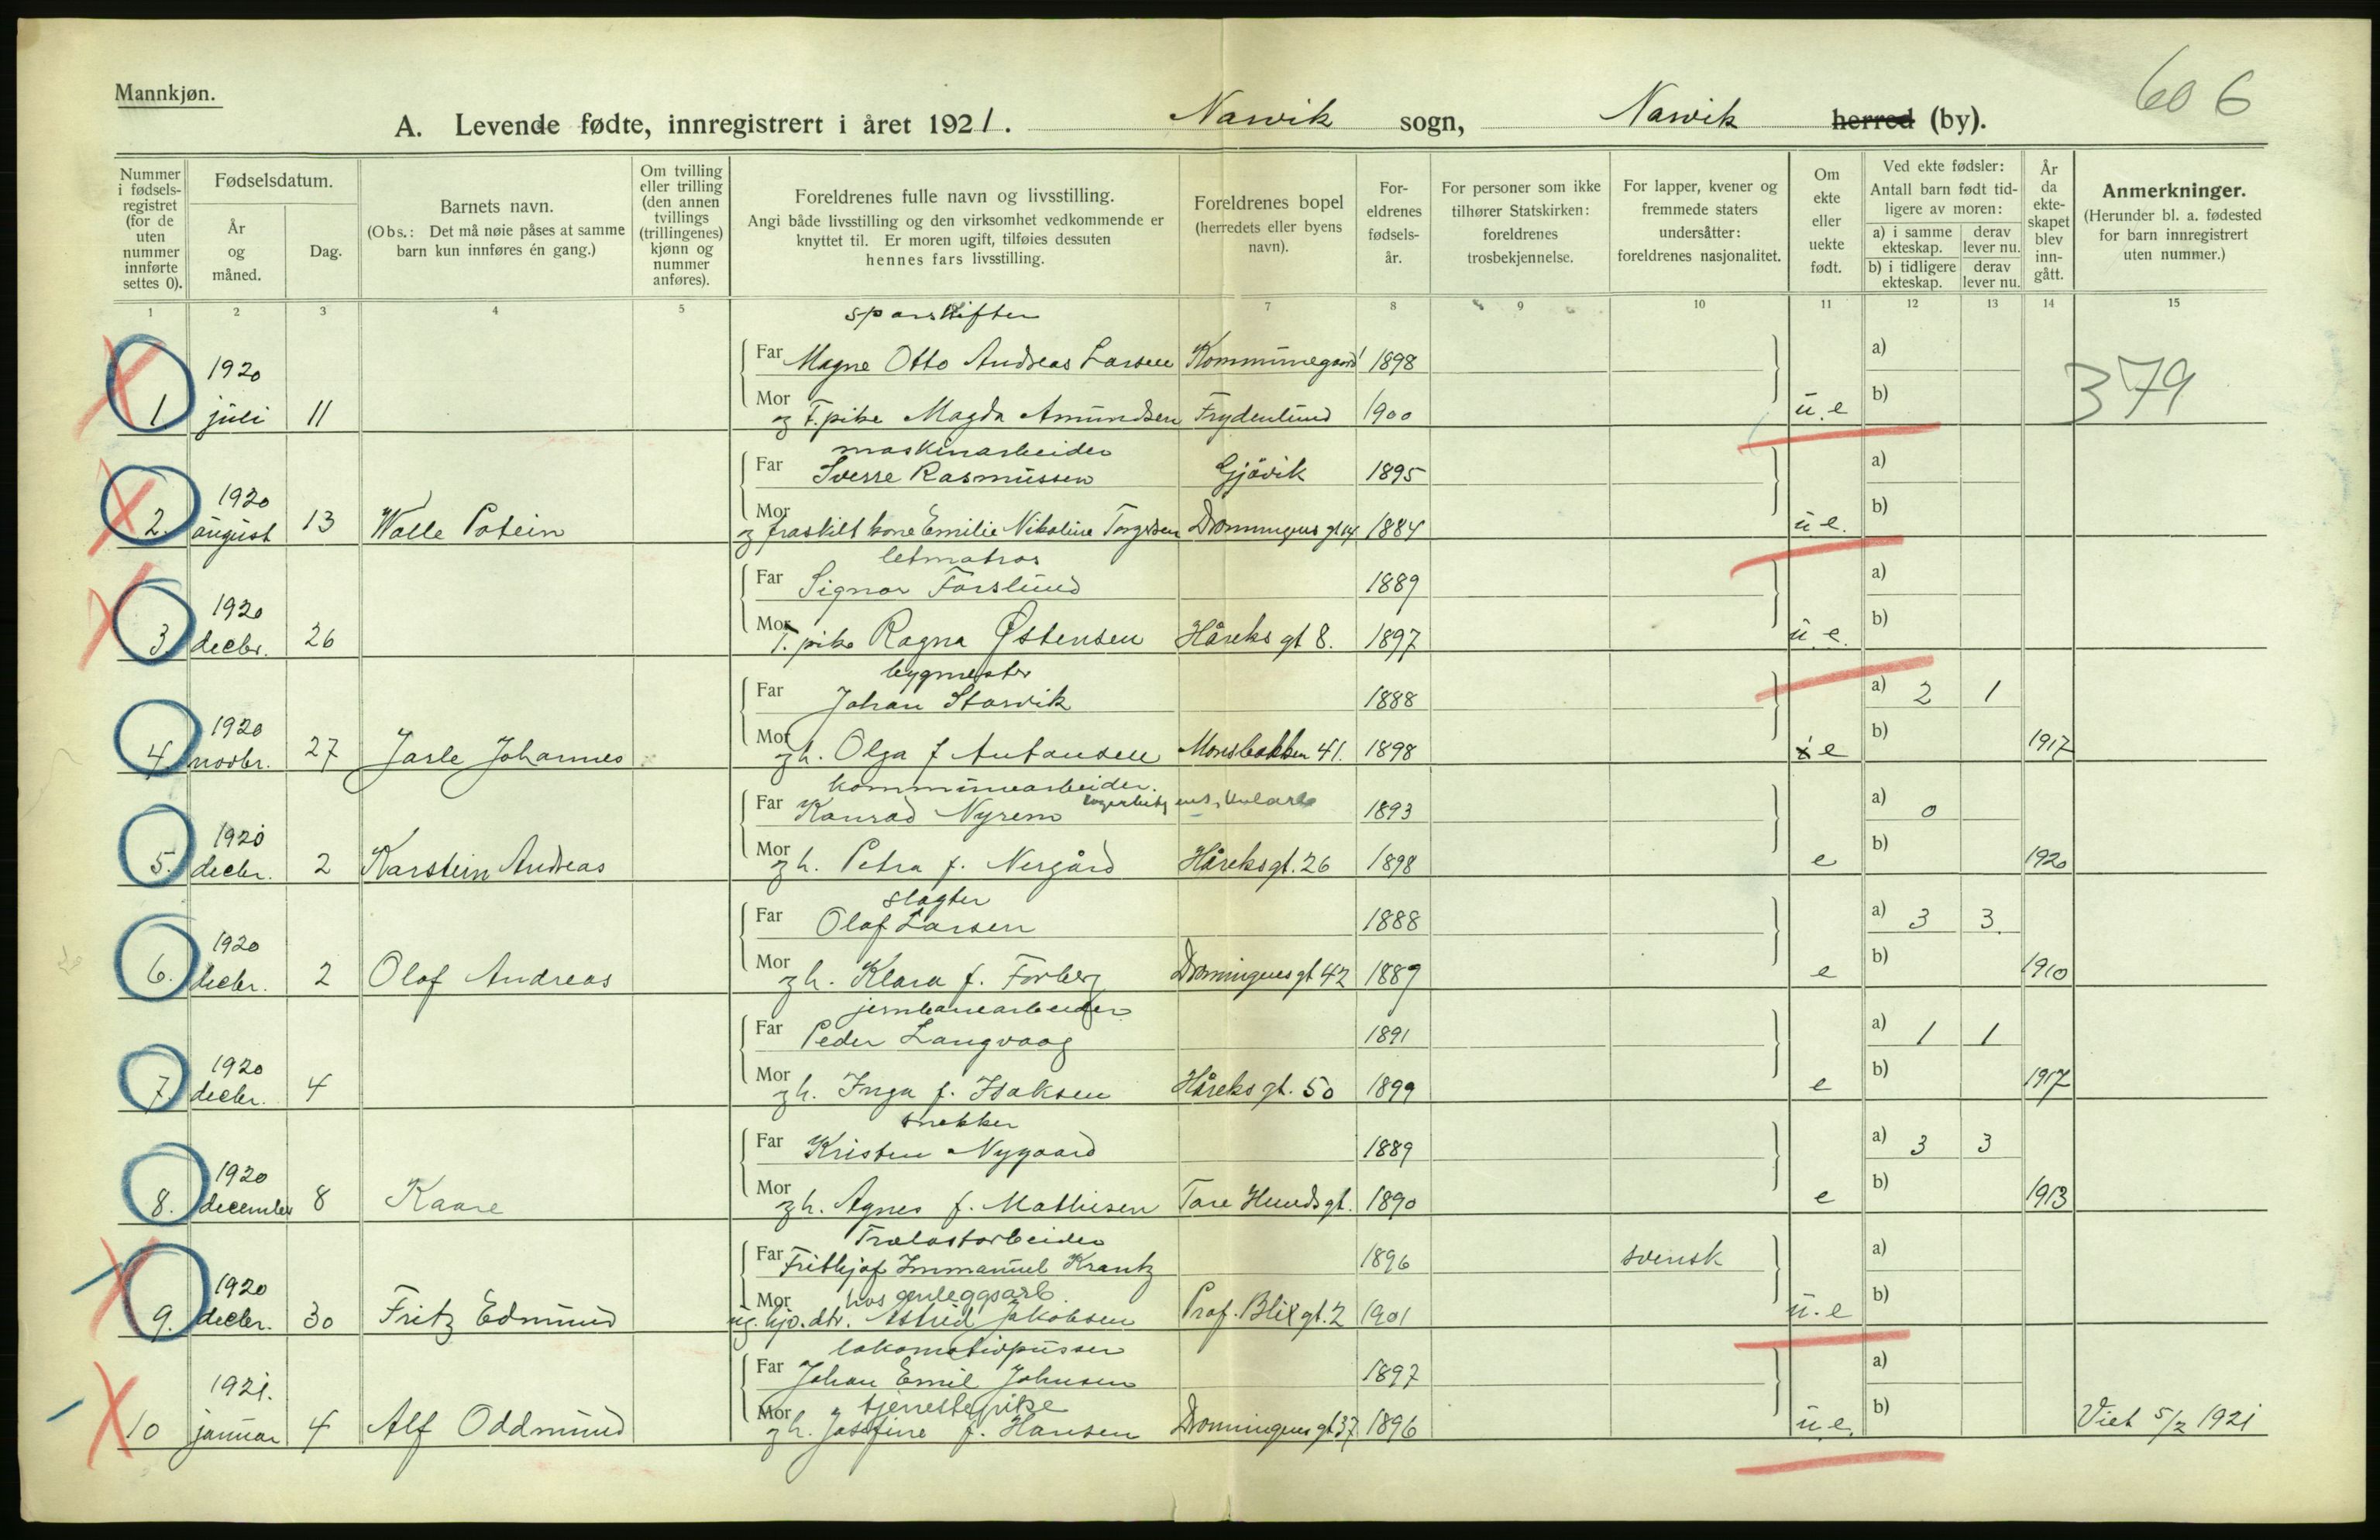 Mannkjøn.
60 6
A. Levende fødte, innregistrert i året 1921. Narvik sogn, Narvik herred (by).
Nummer i fødselsregistret (for de uten nummer innførte settes 0).
Fødselsdatum.
År og måned.
Dag.
Barnets navn.
(Obs.: Det må nøie påses at samme barn kun innføres én gang.)
Om tvilling eller trilling (den annen tvillings (trillingenes) kjønn og nummer anføres).
Foreldrenes fulle navn og livsstilling.
Angi både livsstilling og den virksomhet vedkommende er knyttet til. Er moren ugift, tilføies dessuten hennes fars livsstilling.
Foreldrenes bopel (herredets eller byens navn).
Foreldrenes fødselsår.
For personer som ikke tilhører Statskirken: foreldrenes trosbekjennelse.
For lapper, kvener og fremmede staters undersåtter: foreldrenes nasjonalitet.
Om ekte eller uekte født.
Ved ekte fødsler:
Antall barn født tidligere av moren:
a) i samme ekteskap. derav lever nu.
b) i tidligere ekteskap. derav lever nu.
År da ekteskapet blev inngått.
Anmerkninger.
(Herunder bl. a. fødested for barn innregistrert uten nummer.)
1 2 3 4 5 6 7 8 9 10 11 12 13 14 15
sporskifter
Far Magne Otto Andreas Larsen Kommunegaard 1898 a)
1. 1920 juli 11 Mor og T. pike Magda Amundsen Frydenlund 1900 u.e b) 379
maskinarbeider
Far Sverre Rasmussen Gjövik 1895 a)
2. 1920 august 13 Walle Potein Mor og fraskilt kone Emilie Nikoline Torgersen Dronningens gt 14. 1884 u e. b)
letmatros
Far Signar Forslund 1889 a)
3. 1920 decbr. 26 Mor T. pike Ragna Østensen Håreks gt 8. 1897 u e. b)
bygmester
Far Johan Storvik 1888 a) 2 1
4. 1920 novbr. 27 Jarle Johannes Mor og h. Olga f Antonsen Monsbakken 41. 1898 e b) 1917
kommunearbeider.
Far Konrad Nyrem 1893 a) 0
5. 1920 decbr. 2 Karstein Andreas Mor og h. Petra f. Nergård Håreksgt. 26 1898 e b) 1920
slagter
Far Olaf Larsen 1888 a) 3 3.
6. 1920 decbr. 2 Olaf Andreas Mor og h. Klara f. Forberg Dronningens gt 42 1889 e b) 1910
jernbanearbeider
Far Peder Langvaag 1891 a) 1 1
7. 1920 decbr. 4 Mor og h. Inga f. Isaksen Håreks gt. 50 1899 e b) 1917
snekker
Far Kristen Nygaard 1889 a) 3 3
8. 1920 december 8 Kaare Mor og h. Agnes f. Mathisen Tore Hunds gt. 1890 e b) 1913
Trælastarbeider
Far Frithjof Immanuel Krantz 1896 svensk a)
hos anleggsarb.
9. 1920 decbr. 30 Fritz Edmund Mor ug. hjp. dtr. Astrid Jakobsen Prof. Blix gt. 2 1901 u.e b)
lokomotivpusser
Far Johan Emil Johnsen 1897 a)
tjenestepike
10 1921. januar 4 Alf Oddmund Mor og h. Josefine f. Hansen Dronningens gt 37 1896 u e. b) Viet 5/2 1921